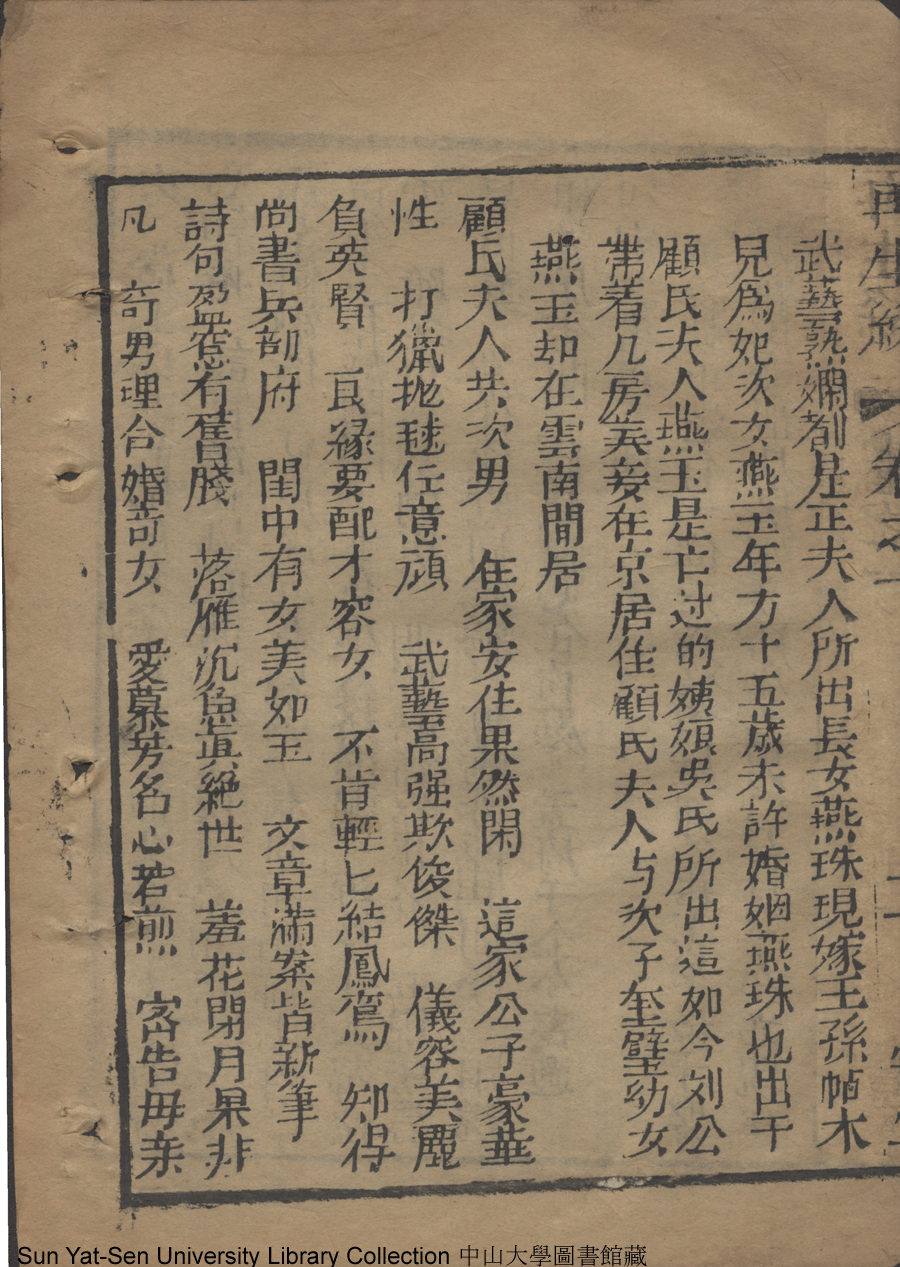 再生緣 卷之一
武藝熟嫻都是正夫人所出長女燕珠現嫁王孫帖木
兒爲妃次女燕玉年方十五歲未許婚姻燕珠也出于
顧氏夫人燕玉是亡过的姨娘吳氏所出這如今刘公
帶着几房美妾在京居住顧氏夫人与次子奎璧幼女
燕玉却在雲南閒居
顧氏夫人共次男 住家安住果然閑 這家公子豪華
性 打獵抛毬任意頑 武藝高强欺俊傑 儀容美麗
負英賢 良緣要配才容女 不肯輕匕結鳳鸞 知得
尚書兵部府 閨中有女美如玉 文章滿案皆新筆
詩句盈窓有舊牋 落雁沉魚眞絕世 羞花閉月果非
凡 奇男理合婚奇女 愛慕芳名心若煎 宻告毋亲
Sun Yat-Sen University Library Collection 中山大學圖書館藏